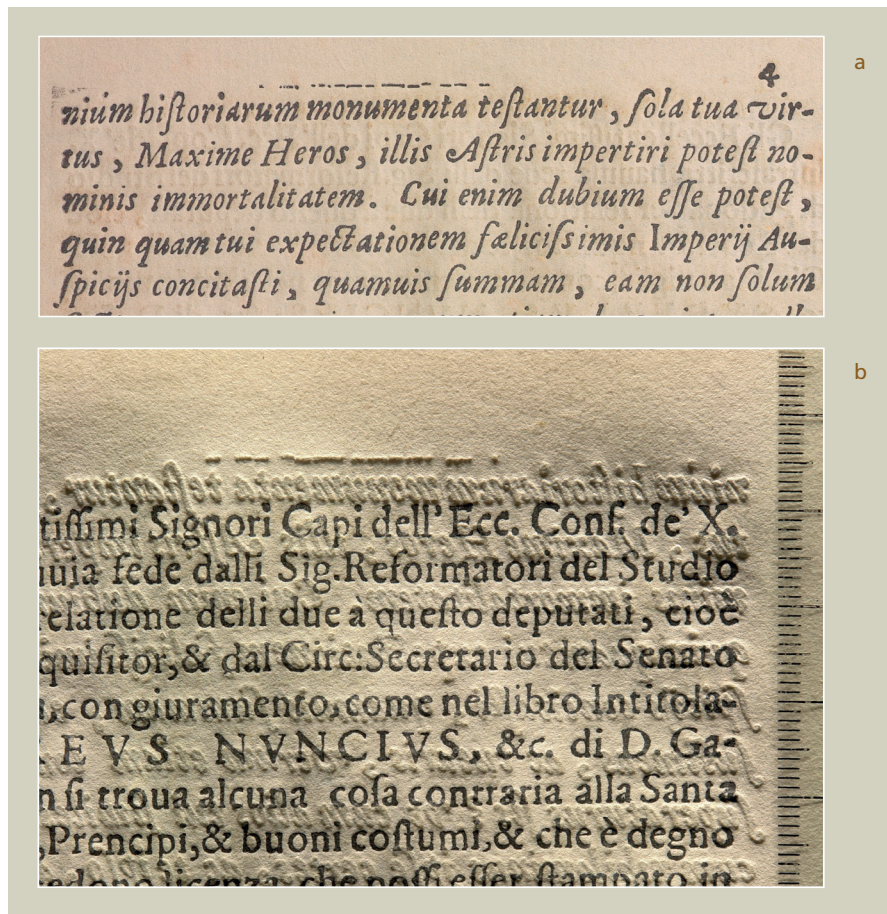 a
4
nium historiarum monumenta testantur, sola tua vir-
tus, Maxime Heros, illis Astris impertiri potest no-
minis immortalitatem. Cui enim dubium esse potest,
quin quam tui expectationem fælicissimis Imperij Au-
spicijs concitasti, quamuis summam, eam non solum
b
tissimi Signori Capi dell' Ecc. Conf. de' X.
uuia fede dalli Sig. Reformatori del Studio
relatione delli due à questo deputati, cioè
quisitor, & dal Circ: Secretario del Senato
, con giuramento, come nel libro Intitola-
EVS NVNCIVS, &c. di D. Ga-
n si troua alcuna cosa contraria alla Santa
, Prencipi, & buoni costumi, & che è degno
licenza, che possi esser stampato in